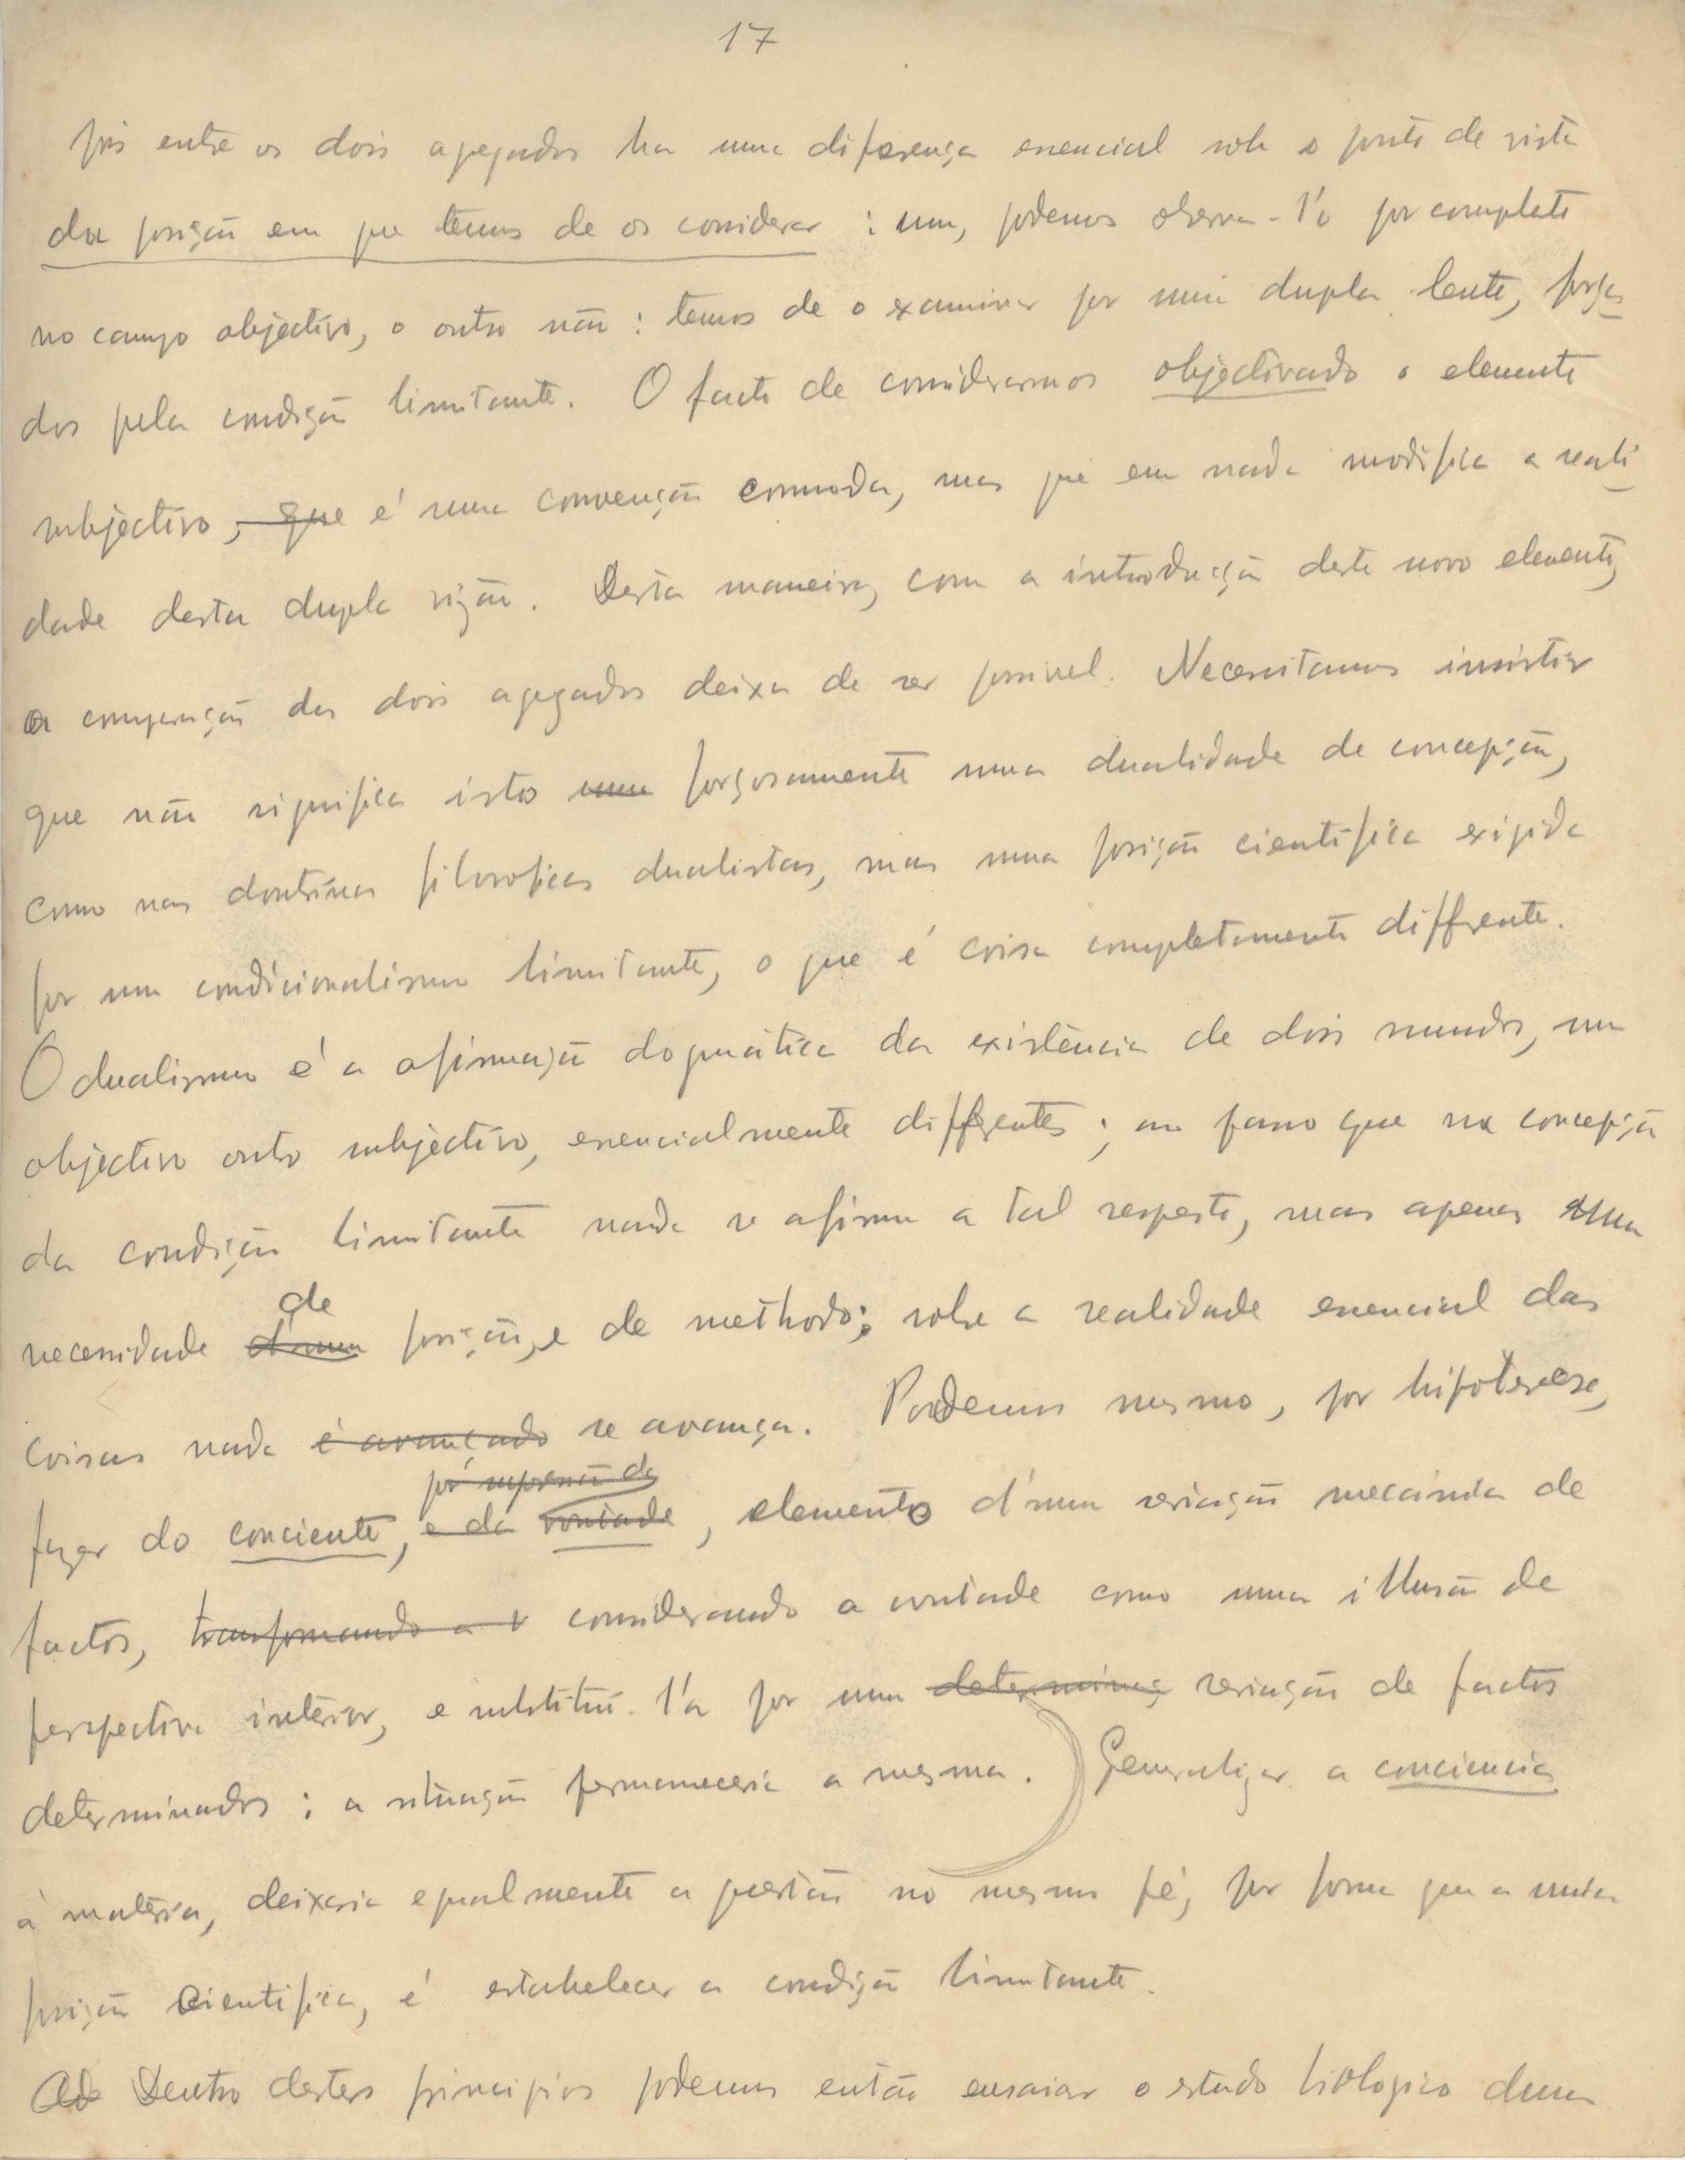 17
pois entre os dois agregados ha uma diferença essencial sob o ponto de vista
da posição em que temos de os considerar : um, podemos observa-l'o por completo
no campo objectivo, o outro não : temos de o examinar por uma dupla lente, força-
dos pela condição limitante. O facto de considerarmos objectivado o elemento
subjectivo, que é uma convenção commoda, mas que em nada modifica a reali-
dade desta dupla visão. Desta maneira, com a introducção deste novo elemento,
a comparação dos dois agregados deixa de ser possivel. Necessitamos insistir
que não significa isto uma forçosamente uma dualidade de concepção,
como nas doutrinas filosoficas dualistas, mas uma posição cientifica exigida
por um condicionalismo limitante, o que é coisa completamente diffrente.
O dualismo é a afirmação dogmática da existência de dois mundos, um
objectivo outro subjectivo, essencialmente diffrentes ; ao passo que na concepção
da condição limitante nada se afirma a tal respeito, mas apenas uma
de
necessidade d'uma posição, e de methodo; sobre a realidade essencial das
coisas nada é avançado se avança. Podemos mesmo, por hipótese,
por supressão da
fazer do conciente, e da vontade, elemento d'uma seriação mecánica de
factos, transformando a v considerando a vontade como uma illusão de
perspectiva interior, e substitui-l'a por uma determinaç seriação de factos
determinados : a situação permaneceria a mesma. Generalizar a conciencia
à matéria, deixaria egualmente a questão no mesmo pé, por forma que a unica
posição cientifica, é estabelecer a condição limitante.
Dentro destes principios podemos então ensaiar o estudo biologico duma